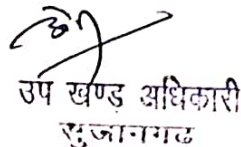 उप खण्ड अधिकारी
सुजानगढ